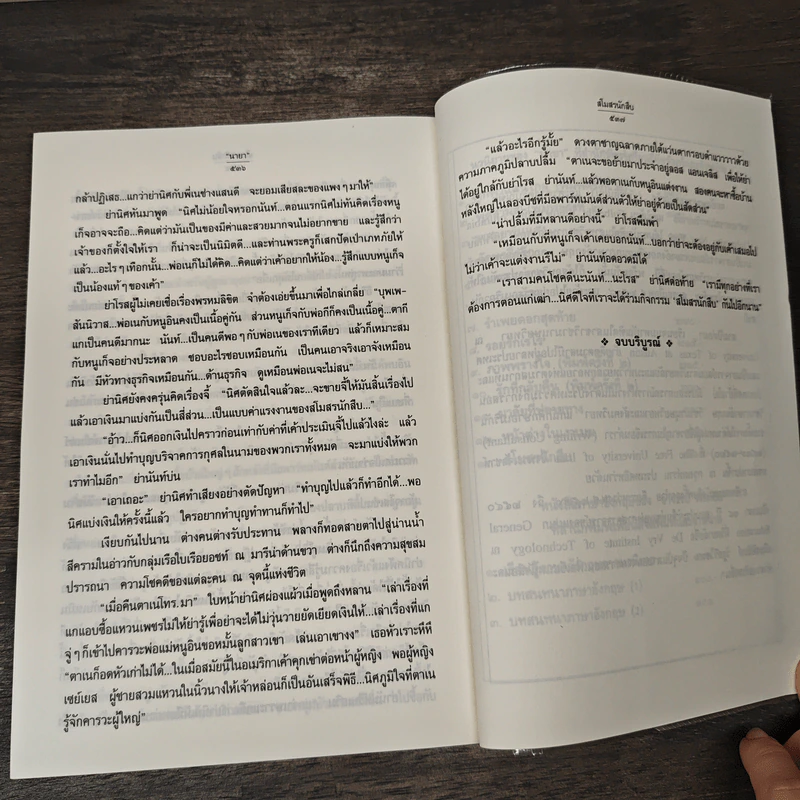 "นายา"
๕๓๖
กล้าปฏิเสธ...แกว่าย่านิศกับพี่เนช่างแสนดี จะยอมเสียสละของแพงๆ มาให้"
ย่านิศหันมาพูด "นิศไม่น้อยใจหรอกนันท์...ตอนแรกนิศไม่ทันคิดเรื่องหนู
เก็จอาจจะถือ...คิดแต่ว่ามันเป็นของมีค่าและสวยมากจนไม่อยากขาย และรู้สึกว่า
เจ้าของก็ตั้งใจให้เรา ก็น่าจะเป็นนิมิตดี...และท่านพระครูก็เสกปัดเป่าเภทภัยให้
แล้ว...อะไรๆ เทือกนั้น...พ่อเนก็ไม่ได้คิด...คิดแต่ว่าเค้าอยากให้น้อง...รู้สึกแบบหนูเก็จ
เป็นน้องแท้ๆ ของเค้า"
ย่าโรสผู้ไม่เคยเชื่อเรื่องพรหมลิขิต จำต้องเอ่ยขึ้นมาเพื่อไกล่เกลี่ย "บุพเพ-
สันนิวาส...พ่อเนกับหนูอินคงเป็นเนื้อคู่กัน ส่วนหนูเก็จกับพ่อกีก็คงเป็นเนื้อคู่...ตากี
แกเป็นคนดีมากนะ นันท์...เป็นคนดีพอๆ กับพ่อเนของเราทีเดียว แล้วก็เหมาะสม
กับหนูเก็จอย่างประหลาด ชอบอะไรชอบเหมือนกัน เป็นคนเอาจริงเอาจังเหมือน
กัน มีหัวทางธุรกิจเหมือนกัน...ด้านธุรกิจ ดูเหมือนพ่อเนจะไม่สน"
ย่านิศยังคงครุ่นคิดเรื่องจี้ "นิศตัดสินใจแล้วละ...จะขายจี้ให้มันสิ้นเรื่องไป
แล้วเอาเงินมาแบ่งกันเป็นสี่ส่วน...เป็นแบบค่าแรงงานของสโมสรนักสืบ..."
"อ้าว...ก็นิศออกเงินไปคราวก่อนเท่ากับค่าที่เค้าประเมินจี้ไปแล้วไงล่ะ แล้ว
เอาเงินนั่นไปทำบุญบริจาคการกุศลในนามของพวกเราทั้งหมด จะมาแบ่งให้พวก
เราทำไมอีก" ย่านันท์บ่น
"เอาเถอะ" ย่านิศทำเสียงอย่างตัดปัญหา "ทำบุญไปแล้วก็ทำอีกได้...พอ
นิศแบ่งเงินให้ครั้งนี้แล้ว ใครอยากทำบุญทำทานก็ทำไป"
เงียบกันไปนาน ต่างคนต่างรับประทาน พลางก็ทอดสายตาไปสู่น่านน้ำ
สีครามในอ่าวกับกลุ่มเรือใบเรือยอชท์ ณ มารีน่าด้านขวา ต่างก็นึกถึงความสุขสม
ปรารถนา ความโชคดีของแต่ละคน ณ จุดนี้แห่งชีวิต
"เมื่อคืนตาเนโทร.มา" ใบหน้าย่านิศผ่องแผ้วเมื่อพูดถึงหลาน "เล่าเรื่องที่
แกแอบซื้อแหวนเพชรไม่ให้ย่ารู้เพื่อย่าจะได้ไม่วุ่นวายยัดเยียดเงินให้...เล่าเรื่องที่แก
จู่ๆ ก็เข้าไปคารวะพ่อแม่หนูอินขอหมั้นลูกสาวเขา เล่นเอาเขางง" เธอหัวเราะหึหึ
"ตาเนก็อดหัวเก่าไม่ได้...ในเมื่อสมัยนี้ในอเมริกาเค้าคุกเข่าต่อหน้าผู้หญิง พอผู้หญิง
เซย์เยส ผู้ชายสวมแหวนในนิ้วนางให้เจ้าหล่อนก็เป็นอันเสร็จพิธี...นิศภูมิใจที่ตาเน
รู้จักคารวะผู้ใหญ่"
สโมสรนักสืบ
๕๓๗
"แล้วอะไรอีกรู้มั้ย" ดวงตาชาญฉลาดภายใต้แว่นตากรอบดำแวววาวด้วย
ความภาคภูมิปลาบปลื้ม "ตาเนจะขอย้ายมาประจำอยู่ลอส แอนเจลิส เพื่อให้ย่า
ได้อยู่ใกล้กับย่าโรส ย่านันท์...แล้วพอตาเนกับหนูอินแต่งงาน สองคนจะหาซื้อบ้าน
หลังใหญ่ในลองบีชที่มีอพาร์ทเม้นต์ส่วนตัวให้ย่าอยู่ด้วยเป็นสัดส่วน"
"น่าปลื้มที่มีหลานดีอย่างนี้" ย่าโรสพึมพำ
"เหมือนกับที่หนูเก็จเค้าเคยบอกนันท์...บอกว่าย่าจะต้องอยู่กับเค้าเสมอไป
ไม่ว่าเค้าจะแต่งงานรึไม่" ย่านันท์อดอวดมิได้
"เราสามคนโชคดีนะนันท์...นะโรส" ย่านิศต่อท้าย "เรามีทุกอย่างที่เรา
ต้องการตอนแก่เฒ่า...นิศดีใจที่เราจะได้ร่วมกิจกรรม 'สโมสรนักสืบ' กันไปอีกนาน"
❖ จบบริบูรณ์ ❖